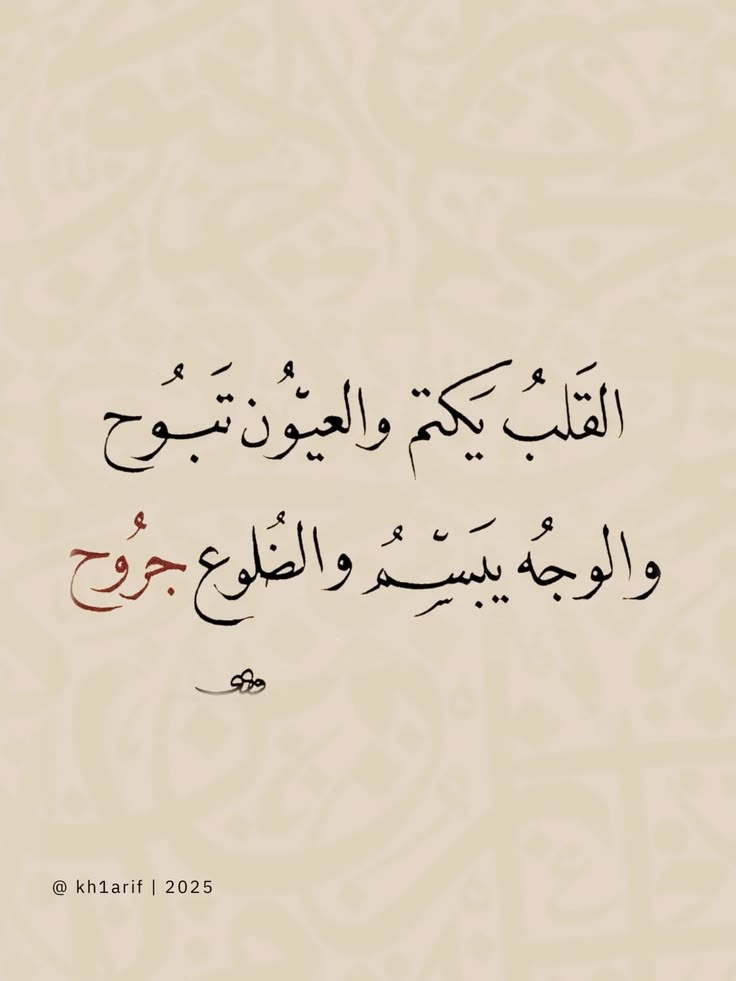 القَلبُ يَكتم والعيّوُن تَبُوح
والوجهُ يَبسّمُ والضُلوع جرُوح
@ kh1arif | 2025